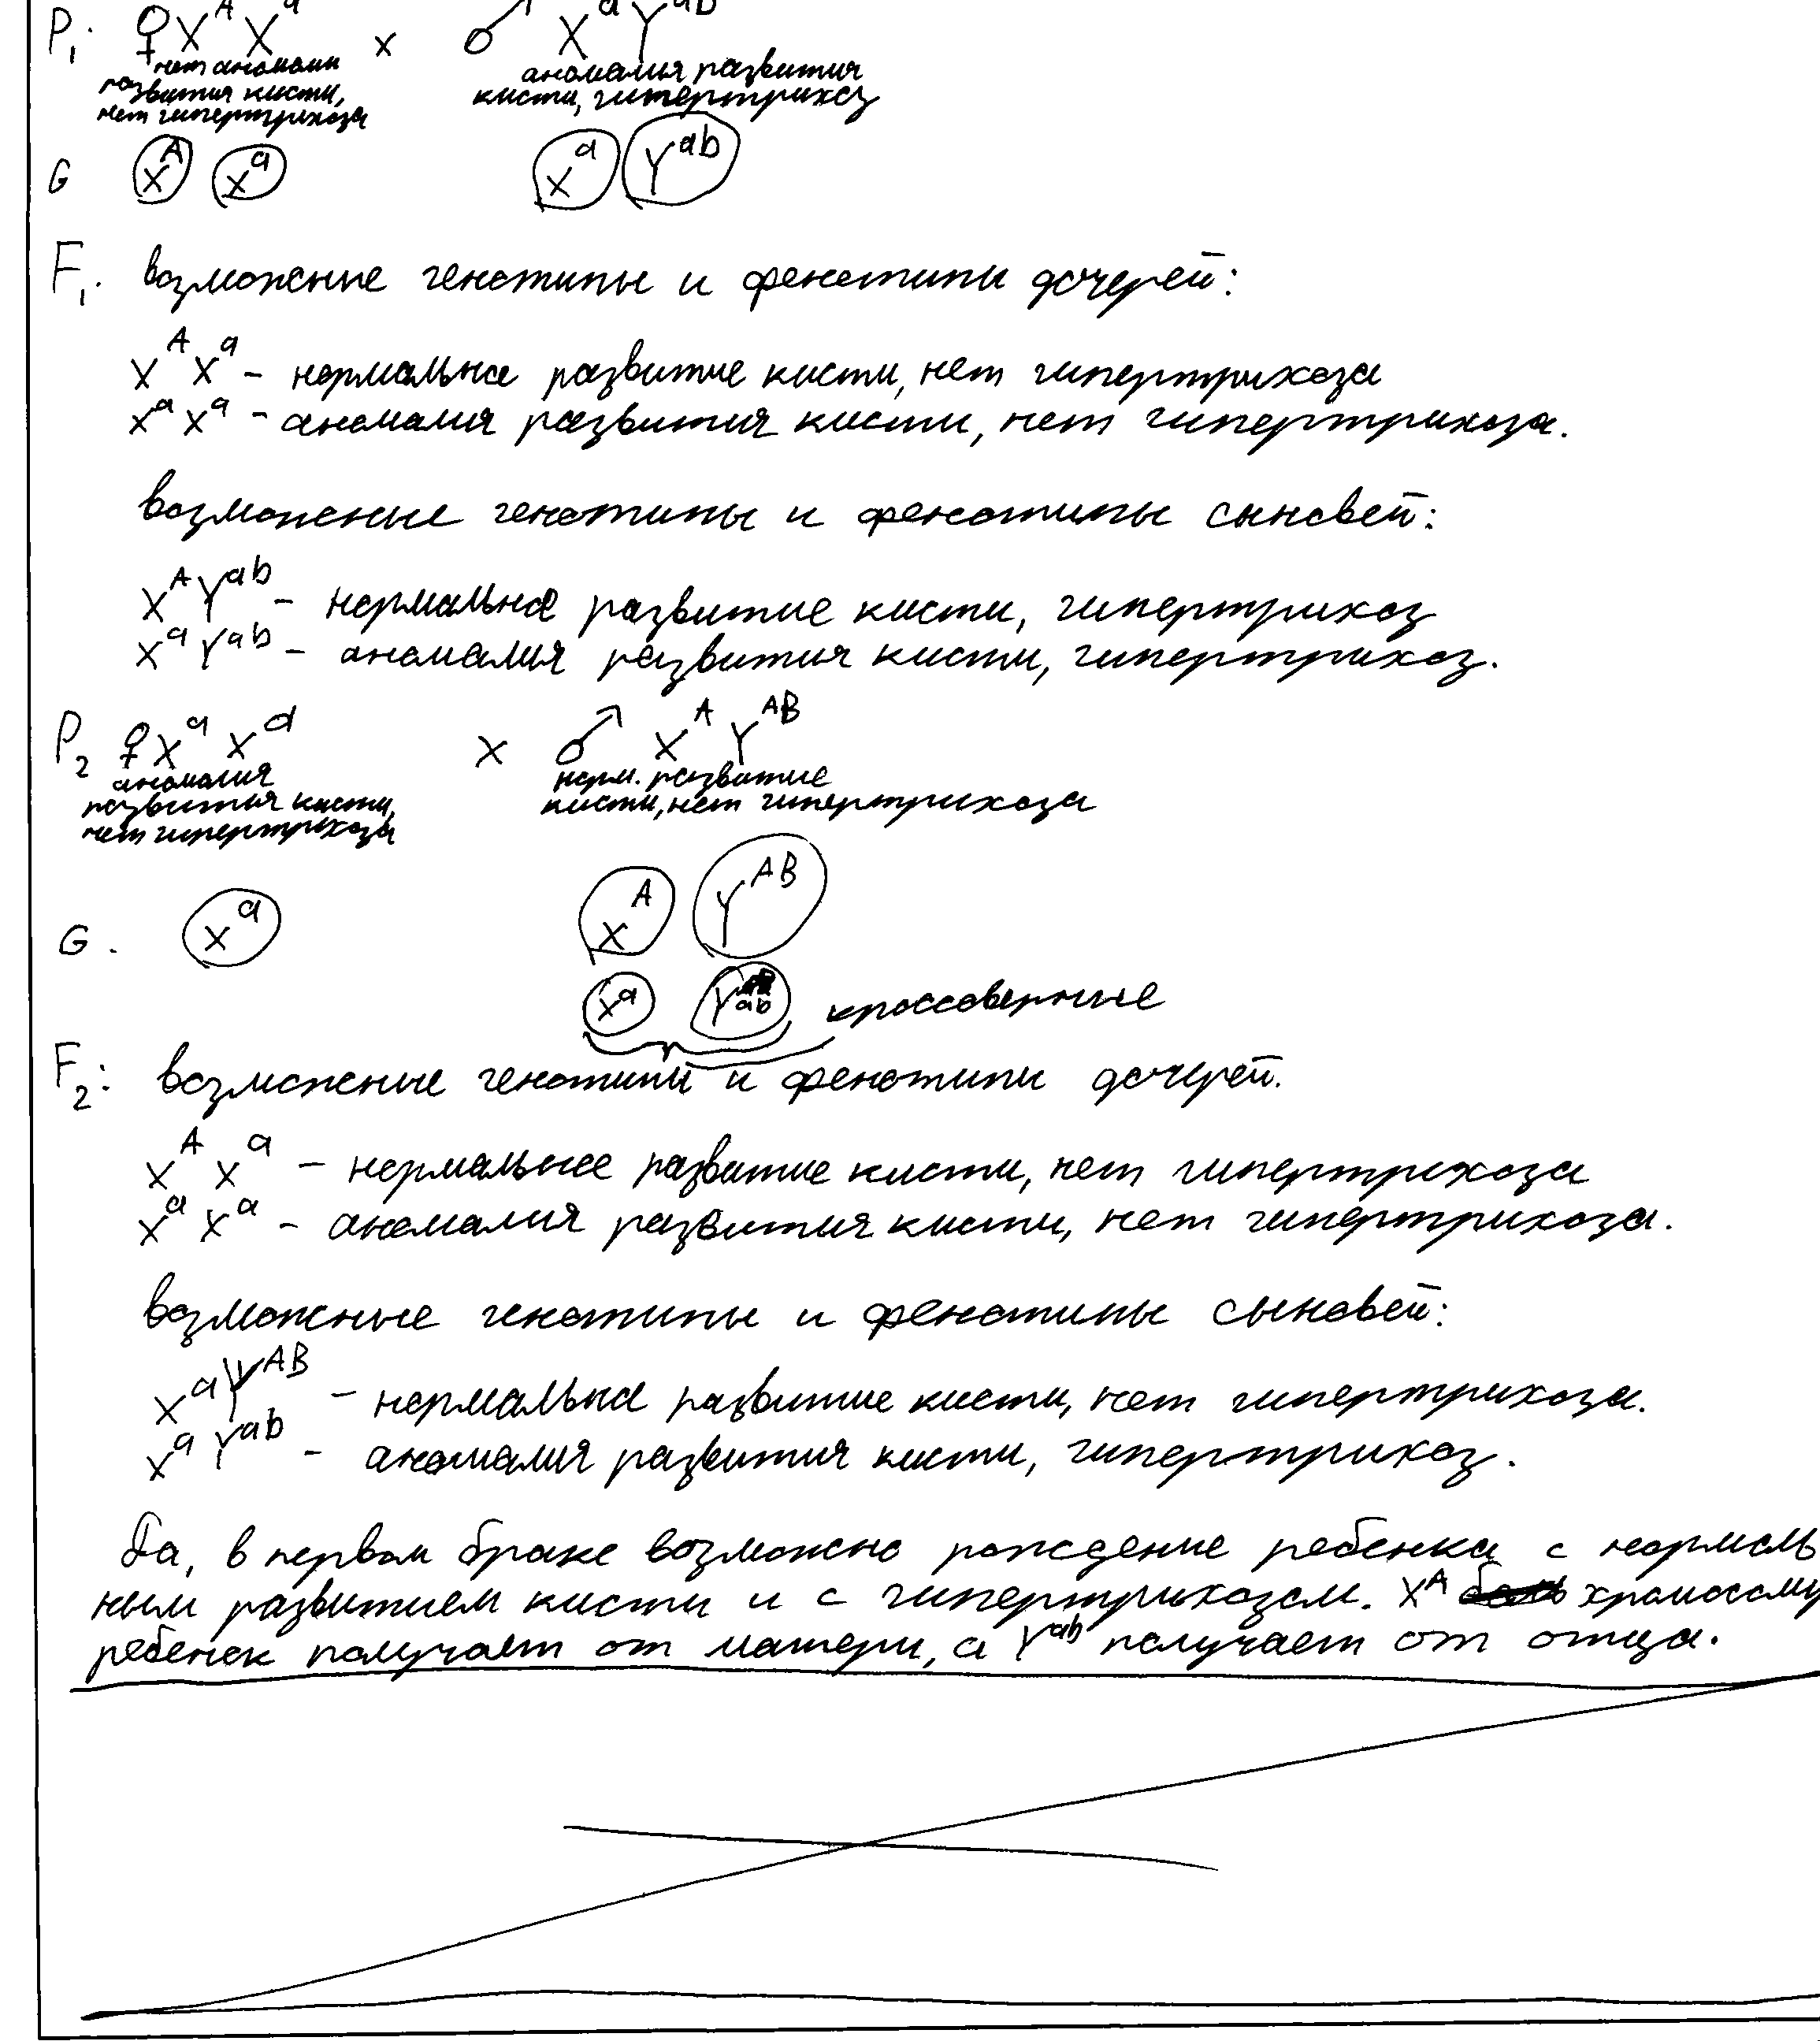 P₁. ♀ X^A X^a x ♂ X^a Y^ab
нет аномалии
развития кисти,
нет гипертрихоза
аномалия развития
кисти, гипертрихоз
G X^A X^a X^a Y^ab
F₁. возможные генотипы и фенотипы дочерей:
X^A X^a - нормальное развитие кисти, нет гипертрихоза
X^a X^a - аномалия развития кисти, нет гипертрихоза.
возможные генотипы и фенотипы сыновей:
X^A Y^ab - нормальное развитие кисти, гипертрихоз
X^a Y^ab - аномалия развития кисти, гипертрихоз.
P₂ ♀ X^a X^a x ♂ X^A Y^AB
аномалия
развития кисти,
нет гипертрихоза
норм. развитие
кисти, нет гипертрихоза
G. X^a X^A Y^AB
X^a Y^ab кроссоверные
F₂: возможные генотипы и фенотипы дочерей.
X^A X^a - нормальное развитие кисти, нет гипертрихоза
X^a X^a - аномалия развития кисти, нет гипертрихоза.
возможные генотипы и фенотипы сыновей:
X^a Y^AB - нормальное развитие кисти, нет гипертрихоза.
X^a Y^ab - аномалия развития кисти, гипертрихоз.
Да, в первом браке возможно рождение ребенка с нормаль
ным развитием кисти и с гипертрихозом. X^A хромосому
ребенок получает от матери, а Y^ab получает от отца.